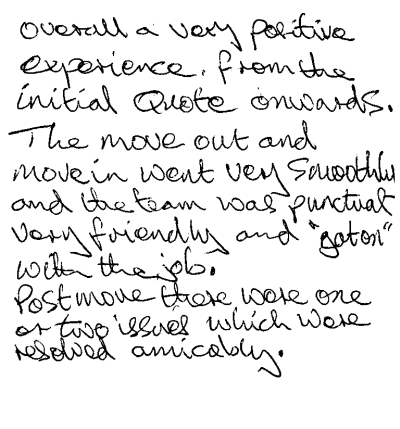 overall a very positive
experience. from the
initial Quote onwards.
The move out and
move in went very smoothly
and the team was punctual
very friendly and "got on"
with the job.
Post move there were one
or two issues which were
resolved amicably.